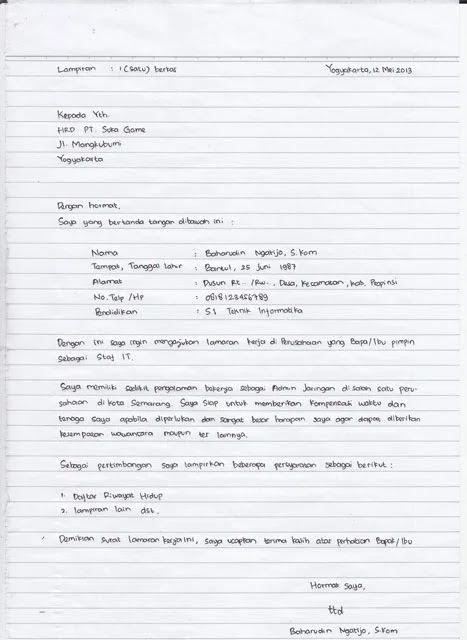 Lampiran : 1 (satu) berkas
Yogyakarta, 12 Mei 2013
Kepada Yth.
HRD PT. Suka Game
Jl. Mangkubumi
Yogyakarta
Dengan hormat,
Saya yang bertanda tangan dibawah ini :
Nama : Baharudin Ngatijo, S.Kom
Tempat, Tanggal lahir : Bantul, 25 Juni 1987
Alamat : Dusun Rt... /Rw..., Desa, Kecamatan, Kab, Propinsi
No. Telp /HP : 0818123456789
Pendidikan : S1 Teknik Informatika
Dengan ini saya ingin mengajukan lamaran kerja di Perusahaan yang Bapa/Ibu pimpin
sebagai Staf IT.
Saya memiliki sedikit pengalaman bekerja sebagai Admin Jaringan di salah satu peru-
sahaan di kota Semarang. Saya siap untuk memberikan kompensasi waktu dan
tenaga saya apabila diperlukan dan sangat besar harapan saya agar dapat diberikan
kesempatan wawancara maupun tes lainnya.
Sebagai pertimbangan saya lampirkan beberapa persyaratan sebagai berikut :
1. Daftar Riwayat Hidup
2. lampiran lain dsb.
Demikian surat lamaran kerja ini, saya ucapkan terima kasih atas perhatian Bapak/Ibu
Hormat Saya,
ttd
Baharudin Ngatijo, S.Kom